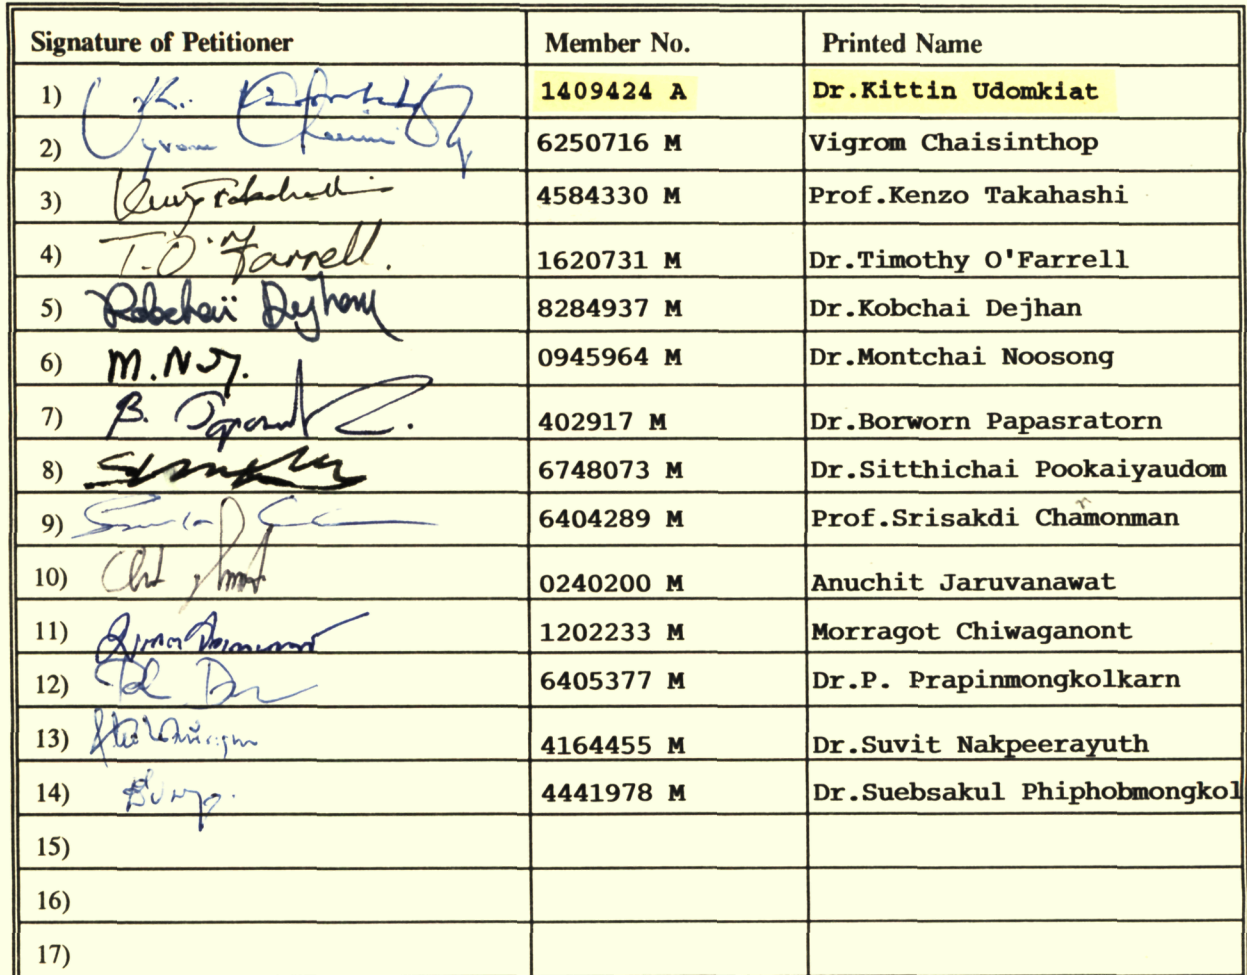 Signature of Petitioner Member No. Printed Name
1) 1409424 A Dr.Kittin Udomkiat
2) 6250716 M Vigrom Chaisinthop
3) 4584330 M Prof.Kenzo Takahashi
4) T.O'Farrell. 1620731 M Dr.Timothy O'Farrell
5) Kobchai Dejhan 8284937 M Dr.Kobchai Dejhan
6) 0945964 M Dr.Montchai Noosong
7) 402917 M Dr.Borworn Papasratorn
8) 6748073 M Dr.Sitthichai Pookaiyaudom
9) 6404289 M Prof.Srisakdi Chamonman
10) 0240200 M Anuchit Jaruvanawat
11) 1202233 M Morragot Chiwaganont
12) 6405377 M Dr.P. Prapinmongkolkarn
13) 4164455 M Dr.Suvit Nakpeerayuth
14) 4441978 M Dr.Suebsakul Phiphobmongkol
15)
16)
17)